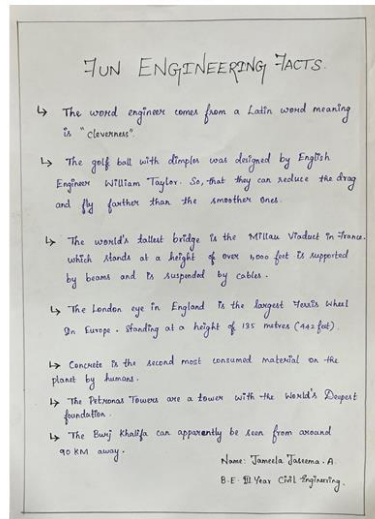 FUN ENGINEERING FACTS.
↳ The word engineer comes from a Latin word meaning
is "cleverness".
↳ The golf ball with dimples was designed by English
Engineer William Taylor. So, that they can reduce the drag
and fly farther than the smoother ones.
↳ The world's tallest bridge is the Millau Viaduct in France.
which stands at a height of over 1,000 feet is supported
by beams and is suspended by cables.
↳ The London eye in England is the largest Ferris Wheel
In Europe. Standing at a height of 135 metres (442 feet).
↳ Concrete is the second most consumed material on the
planet by humans.
↳ The Petronas Towers are a tower with the World's Deepest
foundation.
↳ The Burj Khalifa can apparently be seen from around
90 KM away.
Name: Jameela Jaseema. A.
B.E. III Year Civil Engineering.